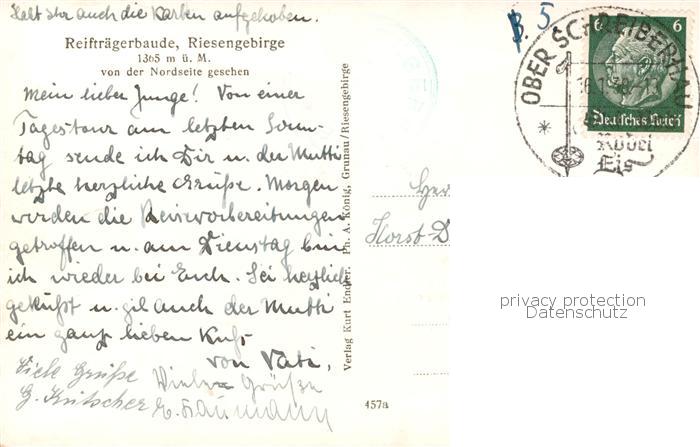 Habt Ihr auch die Karten aufgehoben.
Reifträgerbaude, Riesengebirge
1365 m ü. M.
von der Nordseite gesehen
Mein lieber Junge! Von einer
Tagestour am letzten Sonn-
tag sende ich Dir u. der Mutti
letzte herzliche Grüße. Morgen
werden die Reisevorbereitungen
getroffen u. am Dienstag bin
ich wieder bei Euch. Sei herzlich
geküßt u. gib auch der Mutti
ein ganz lieben Kuß
von Vati,
Viele Grüße
G. Kutscher
Viele Grüße
E. Naumann
Verlag Kurt Endler, Ph. A. König, Grunau/Riesengebirge
457a
B. 5.
OBER SCHREIBERHAU
6 6
Deutsches Reich
Rodel
Eis
Her
Horst D
privacy protection
Datenschutz